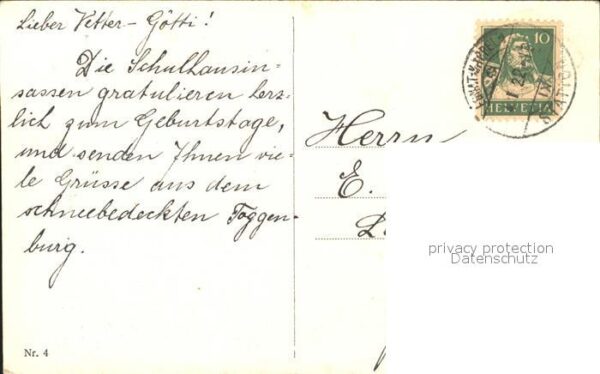 Lieber Vetter-Götti!
Die Schulhausin-
sassen gratulieren herz-
lich zum Geburtstage,
und senden Ihnen vie-
le Grüsse aus dem
schneebedeckten Toggen-
burg.
Nr. 4
10
HELVETIA
Herrn
E.
privacy protection
Datenschutz